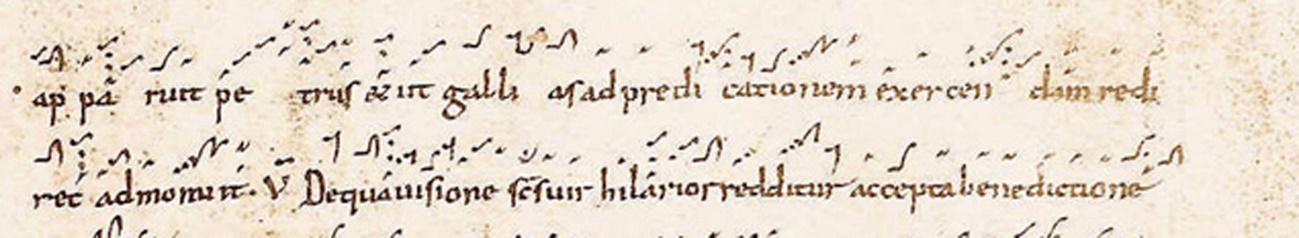 appa ruit pe trus & ut galli as ad predi cationem exercen dam redi
ret admonuit. V De qua uisione scs uir hilarior redditur accepta benedictione